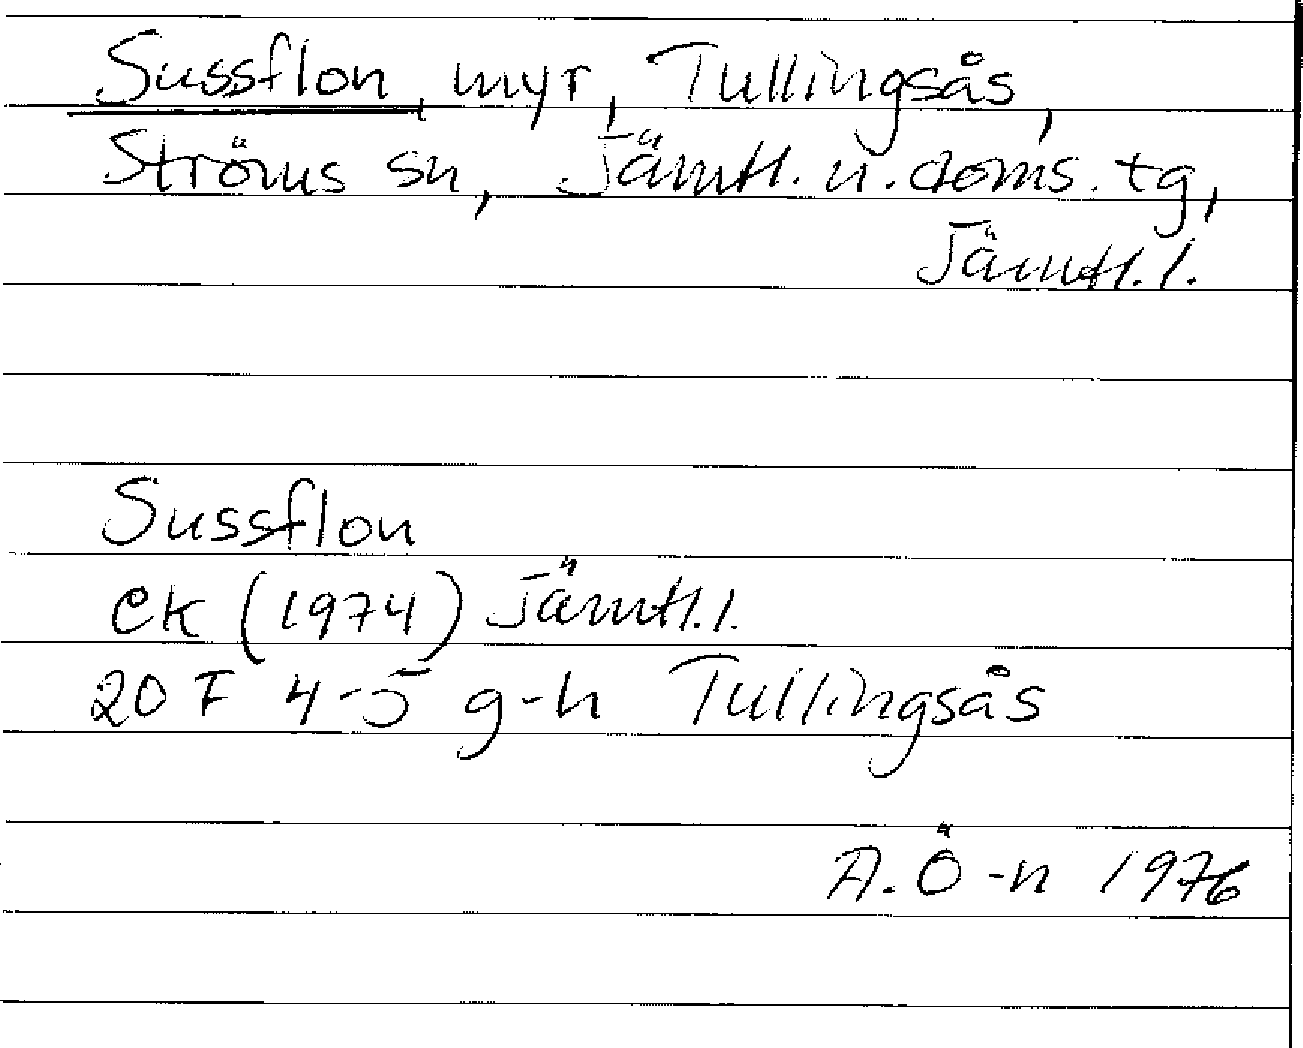 Sussflon, myr, Tullingsås,
Ströms sn, Jämtl. n. doms. tg,
Jämtl. l.
Sussflon
EK (1974) Jämtl. l.
20 F 4-5 g-h Tullingsås
A. Ö-n 1976